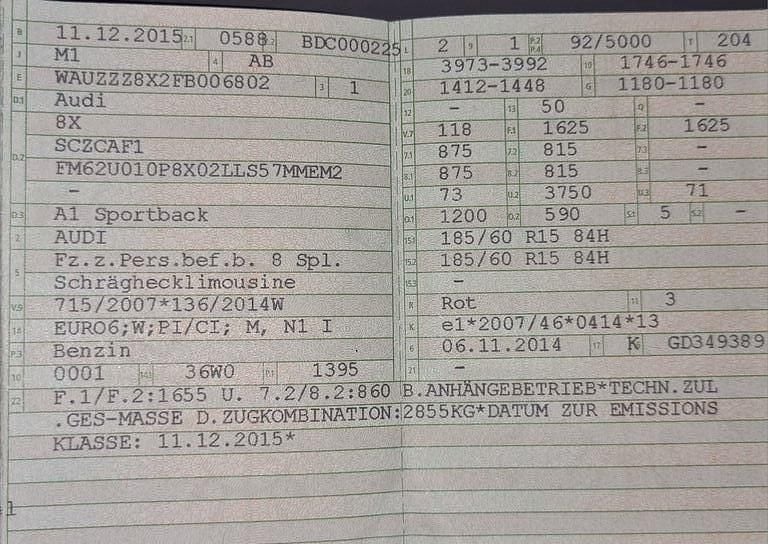 B 11.12.2015 2.1 0588 2.2 BDC000225
J M1 4 AB
E WAUZZZ8X2FB006802 3 1
D.1 Audi
8X
D.2 SCZCAF1
FM62U010P8X02LLS57MMEM2
-
D.3 A1 Sportback
2 AUDI
5 Fz.z.Pers.bef.b. 8 Spl.
Schräghecklimousine
V.9 715/2007*136/2014W
14 EURO6;W;PI/CI; M, N1 I
P.3 Benzin
10 0001 14.1 36W0 P.1 1395
L 2 9 1 P.2 P.4 92/5000 T 204
18 3973-3992 19 1746-1746
20 1412-1448 G 1180-1180
12 - 13 50 Q -
V.7 118 F.1 1625 F.2 1625
7.1 875 7.2 815 7.3 -
8.1 875 8.2 815 8.3 -
U.1 73 U.2 3750 U.3 71
O.1 1200 O.2 590 S.1 5 S.2 -
15.1 185/60 R15 84H
15.2 185/60 R15 84H
15.3 -
R Rot 11 3
K e1*2007/46*0414*13
6 06.11.2014 17 K GD349389
21 -
22 F.1/F.2:1655 U. 7.2/8.2:860 B.ANHÄNGEBETRIEB*TECHN.ZUL
.GES-MASSE D.ZUGKOMBINATION:2855KG*DATUM ZUR EMISSIONS
KLASSE: 11.12.2015*